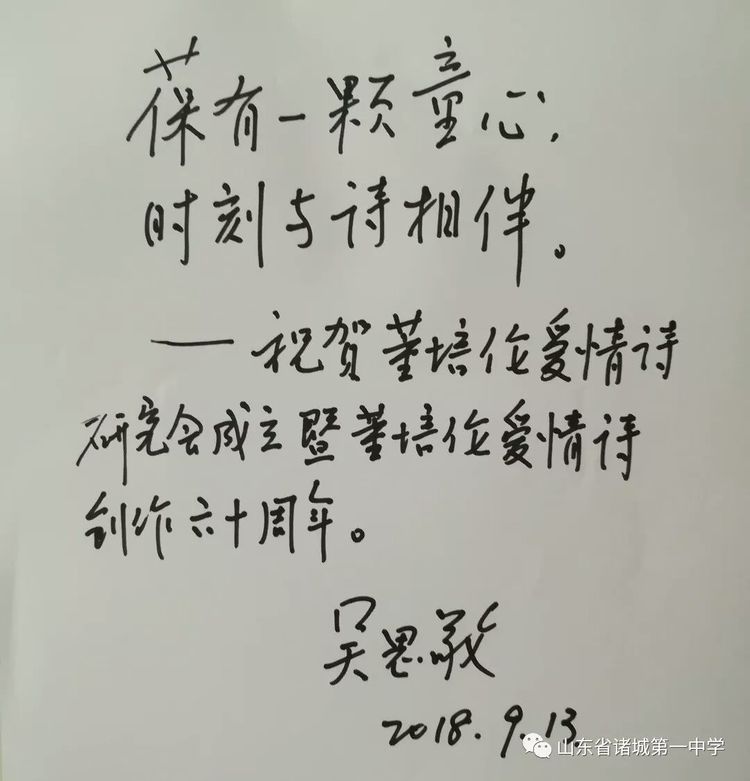 葆有一颗童心,
时刻与诗相伴。
——祝贺董培伦爱情诗
研究会成立暨董培伦爱情诗
创作六十周年。
吴思敬
2018.9.13
山东省诸城第一中学